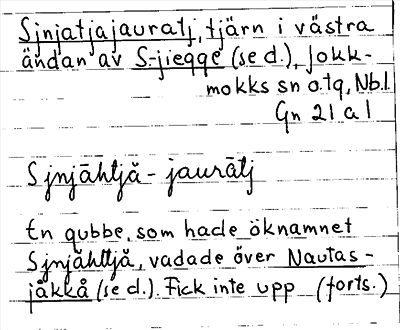 Sjnjatjajauratj, tjärn i västra
ändan av S-jiegge (se d.), Jokk-
mokks sn o. tg, Nb. l.
Gn 21 a 1
Sjnjāhttjă - jaurātj
En gubbe, som hade öknamnet
Sjnjāhttjă, vadade över Nautas-
jåkkå (se d.). Fick inte upp (forts.)